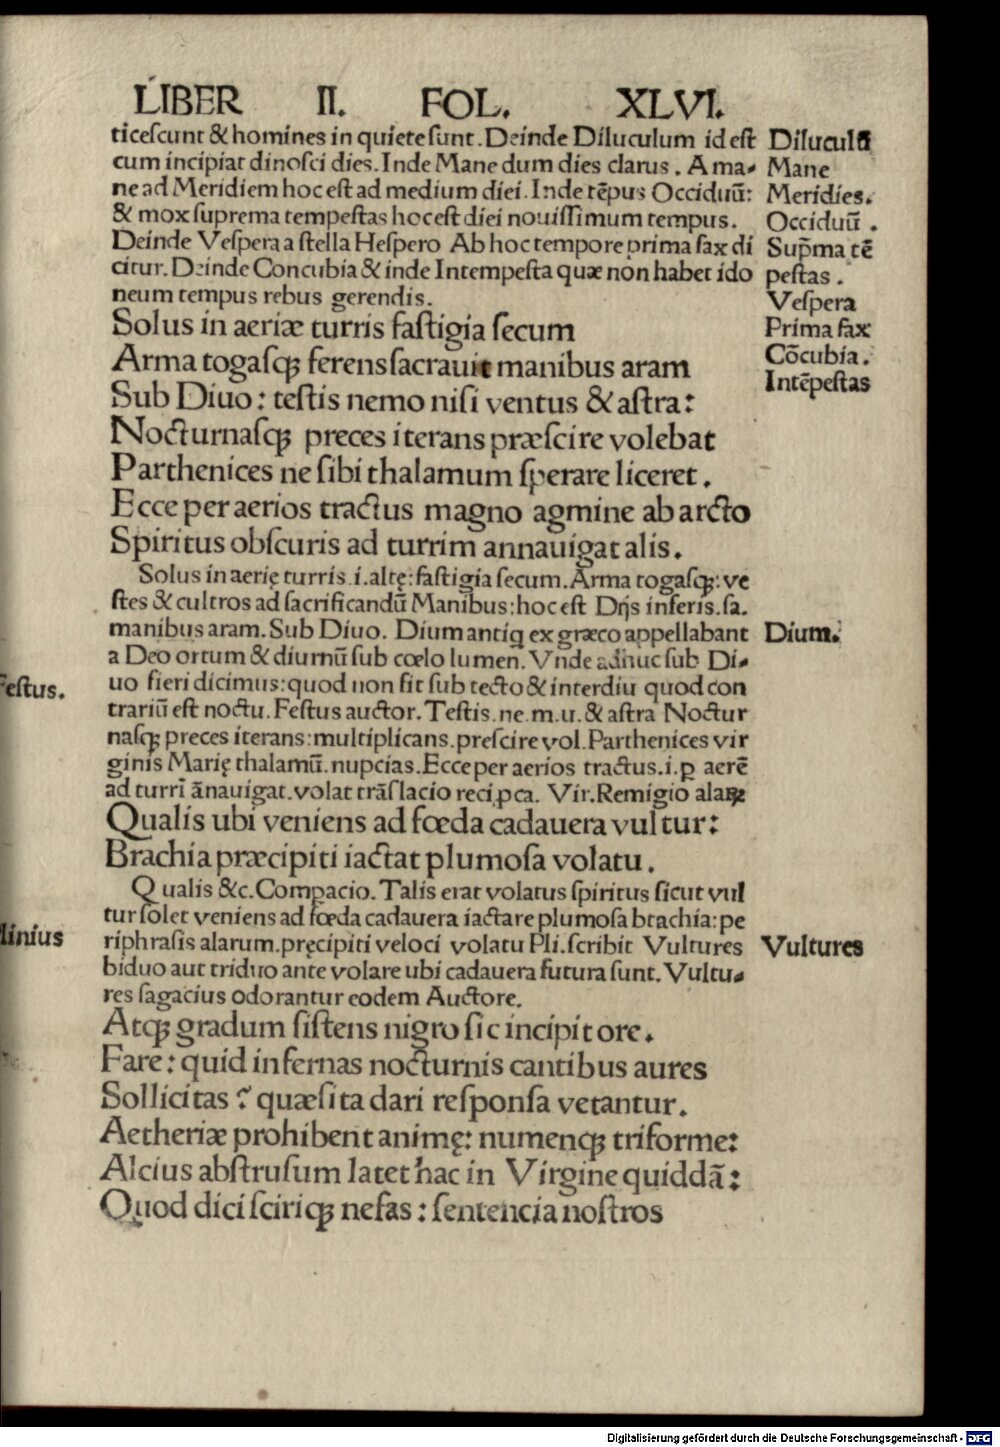 LIBER II. FOL. XLVI.
ticeſcunt & homines in quiete ſunt. Deinde Diluculum id eſt
cum incipiat dinoſci dies. Inde Mane dum dies clarus . A ma⸗
ne ad Meridiem hoc eſt ad medium diei. Inde tēpus Occiduū:
& mox ſuprema tempeſtas hoc eſt diei nouiſſimum tempus.
Deinde Veſpera a ſtella Heſpero Ab hoc tempore prima fax di
citur. Deinde Concubia & inde Intempeſta quæ non habet ido
neum tempus rebus gerendis.
Diluculū
Mane
Meridies.
Occiduū .
Sup̄ma tē
peſtas .
Veſpera
Prima fax
Cōcubia.
Intēpeſtas
Solus in aeriæ turris faſtigia ſecum
Arma togaſqꝫ ferens ſacrauit manibus aram
Sub Diuo: teſtis nemo niſi ventus & aſtra:
Nocturnaſqꝫ preces iterans præſcire volebat
Parthenices ne ſibi thalamum ſperare liceret .
Ecce per aerios tractus magno agmine ab arcto
Spiritus obſcuris ad turrim annauigat alis.
Solus in aerię turris .i. altę: faſtigia ſecum. Arma togaſqꝫ: ve
ſtes & cultros ad ſacrificandū Manibus: hoc eſt Dijs inferis. ſa.
manibus aram. Sub Diuo. Dium antiq ex græco appellabant
a Deo ortum & diurnū ſub cœlo lumen. Vnde adhuc ſub Di⸗
uo fieri dicimus: quod non fit ſub tecto & interdiu quod con
trariū eſt noctu. Feſtus auctor. Teſtis. ne. m. u. & aſtra Noctur
naſqꝫ preces iterans: multiplicans. preſcire vol. Parthenices vir
ginis Marię thalamū. nupcias. Ecce per aerios tractus .i. ꝑ aerē
ad turrī ānauigat. volat trāſlacio reciꝓca. Vir. Remigio alaꝝ
Dium.
Feſtus.
Qualis ubi veniens ad fœda cadauera vultur:
Brachia præcipiti iactat plumoſa volatu .
Qualis &c. Compacio. Talis erat volatus ſpiritus ſicut vul
tur ſolet veniens ad fœda cadauera iactare plumoſa brachia: pe
riphraſis alarum. pręcipiti veloci volatu Pli. ſcribit Vultures
biduo aut triduo ante volare ubi cadauera futura ſunt. Vultu⸗
res ſagacius odorantur eodem Auctore.
Vultures
linius
Atqꝫ gradum ſiſtens nigro ſic incipit ore .
Fare: quid infernas nocturnis cantibus aures
Sollicitas ? quæſita dari reſponſa vetantur.
Aetheriæ prohibent animę: numenqꝫ triforme:
Alcius abſtruſum latet hac in Virgine quiddā:
Quod dici ſciriqꝫ nefas: ſentencia noſtros
Digitalisierung gefördert durch die Deutsche Forschungsgemeinschaft - DFG